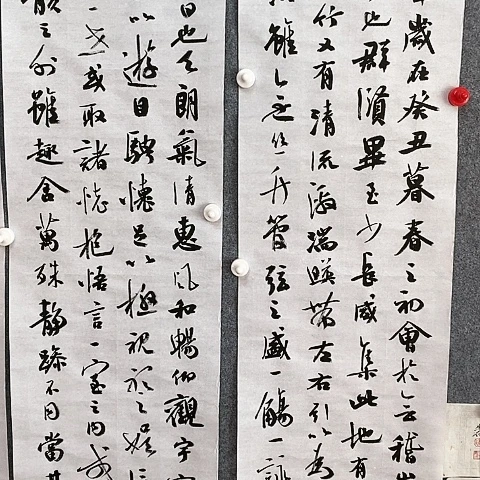 歲在癸丑暮春之初會於會稽山
也群賢畢至少長咸集此地有
竹又有清流激湍暎帶左右引以為
雖無絲竹管弦之盛一觴一詠
日也天朗氣清惠風和暢仰觀宇宙
以遊目騁懷足以極視聽之娛信
一世或取諸懷抱悟言一室之內或
骸之外雖趣舍萬殊靜躁不同當其